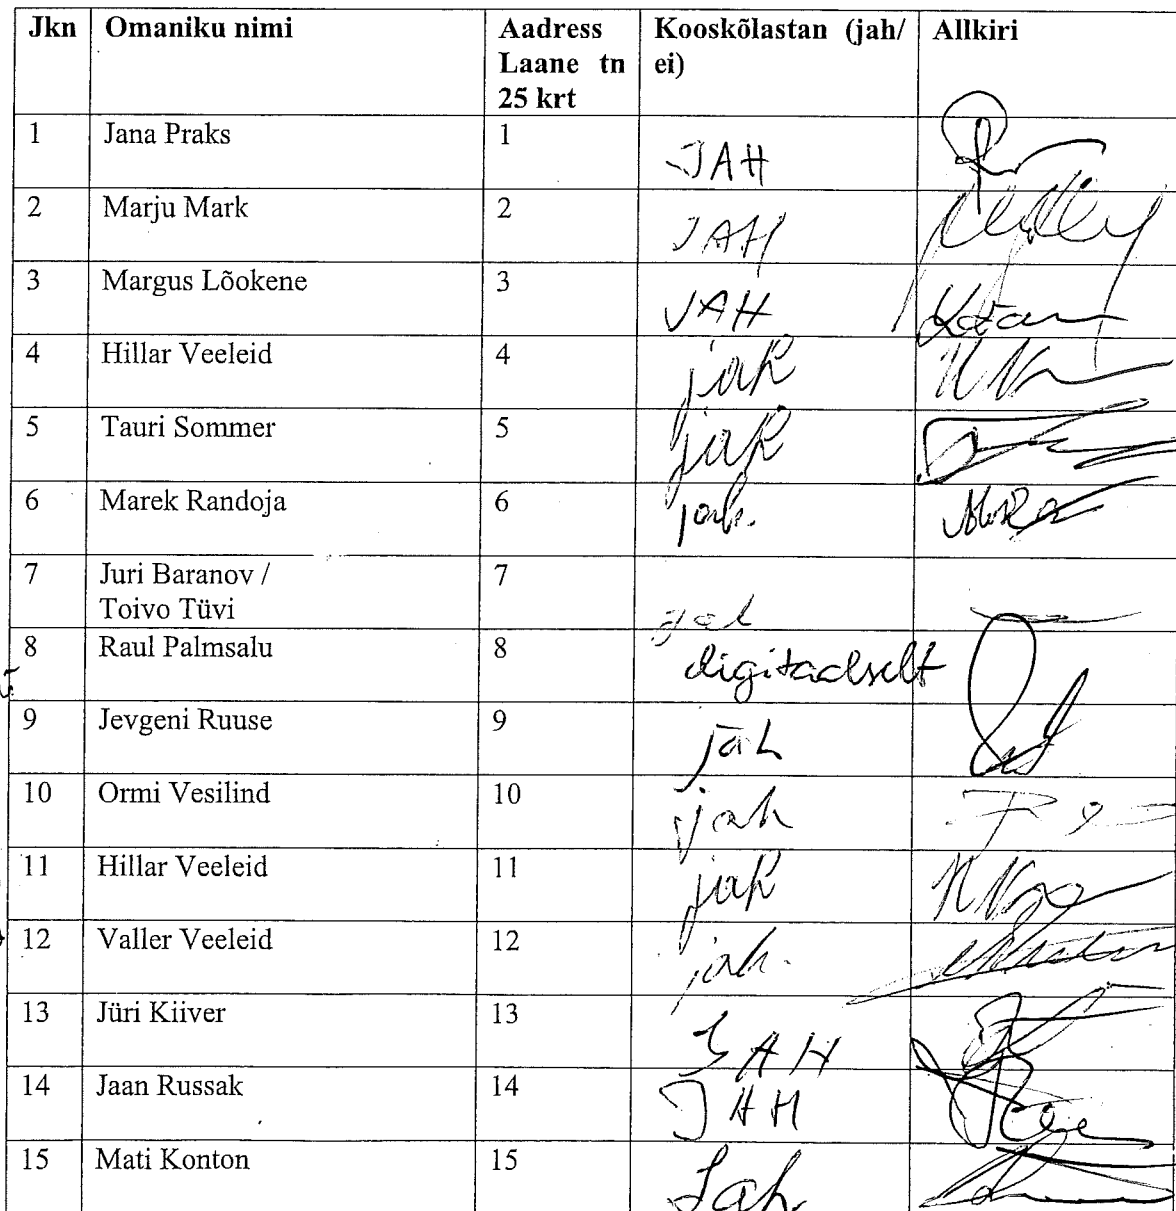 Jkn Omaniku nimi Aadress Laane tn 25 krt Kooskõlastan (jah/ ei) Allkiri
1 Jana Praks 1 JAH
2 Marju Mark 2 JAH
3 Margus Lõokene 3 JAH
4 Hillar Veeleid 4 jah
5 Tauri Sommer 5 jah
6 Marek Randoja 6 jah.
7 Juri Baranov / Toivo Tüvi 7 jah
8 Raul Palmsalu 8 digitaalselt
9 Jevgeni Ruuse 9 jah
10 Ormi Vesilind 10 jah
11 Hillar Veeleid 11 jah
12 Valler Veeleid 12 jah.
13 Jüri Kiiver 13 JAH
14 Jaan Russak 14 JAH
15 Mati Konton 15 Jah